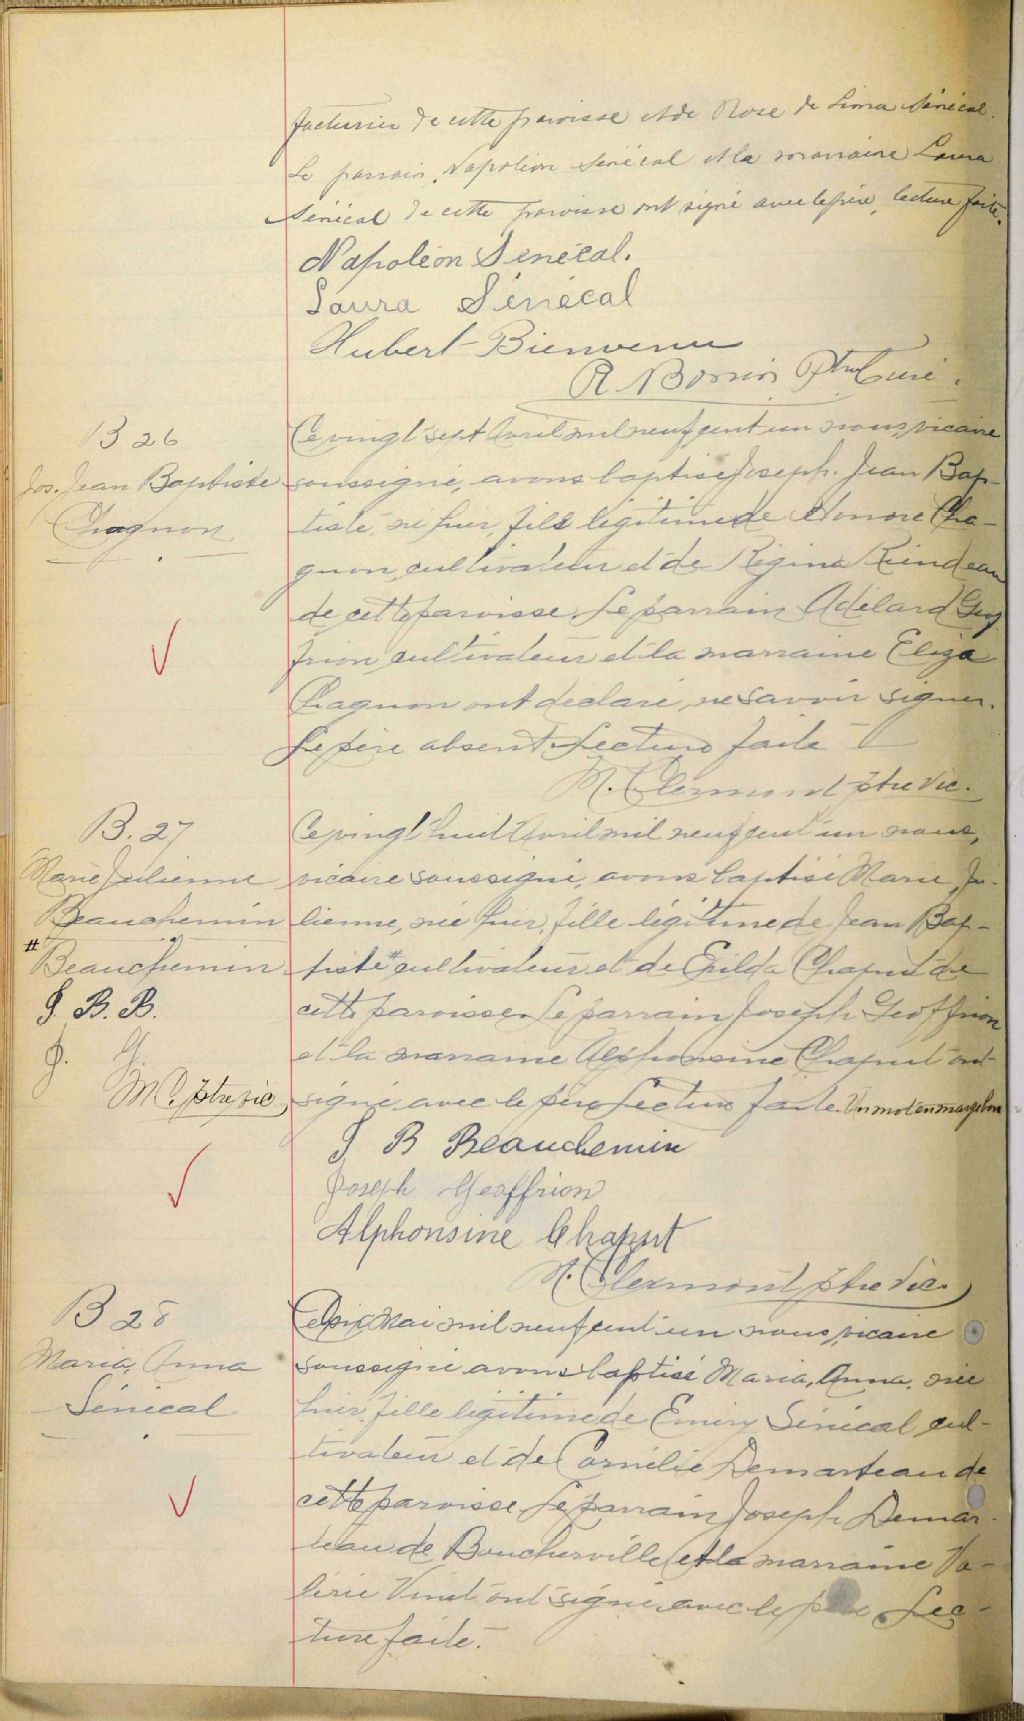 facturier de cette paroisse et de Rose de Lima Sénécal.
Le parrain Napoléon Sénécal et la marraine Laura
Sénécal de cette paroisse ont signé avec le père, lecture faite.
Napoléon Sénécal.
Laura Sénécal
Hubert Bienvenu
Ptre Curé.
B 26
Jos. Jean Baptiste
Chagnon
Ce vingt sept Avril mil neuf cent un nous, vicaire
soussigné, avons baptisé Joseph. Jean Bap-
tiste, né hier, fils légitime de Honoré Cha-
gnon, cultivateur et de Régina Riendeau
de cette paroisse. Le parrain Adélard Geof
frion, cultivateur et la marraine Eliza
Chagnon ont déclaré, ne savoir signer.
Le père absent. Lecture faite
N. Clermont ptre vic.
B. 27
Marie Julienne
Beauchemin
# Beauchemin
J B. B.
J. G.
M C. ptre vic
Ce vingt huit Avril mil neuf cent un nous,
vicaire soussigné, avons baptisé Marie, Ju-
lienne, née hier, fille légitime de Jean Bap-
tiste # cultivateur et de Exilda Chaput de
cette paroisse. Le parrain Joseph Geoffrion
et la marraine Alphonsine Chaput ont
signé avec le père Lecture faite. Un mot en marge bon
J B Beauchemin
Joseph Geoffrion
Alphonsine Chaput
N. Clermont ptre vic.
B 28
Maria, Anna
Sénécal
Ce six Mai mil neuf cent un nous, vicaire
soussigné avons baptisé Maria, Anna, née
hier, fille légitime de Emery Sénécal, cul-
tivateur et de Cornélie Demarteau de
cette paroisse Le parrain Joseph Demar-
teau de Boucherville et la marraine Va-
lérie Vinet ont signé avec le père Lec-
ture faite.